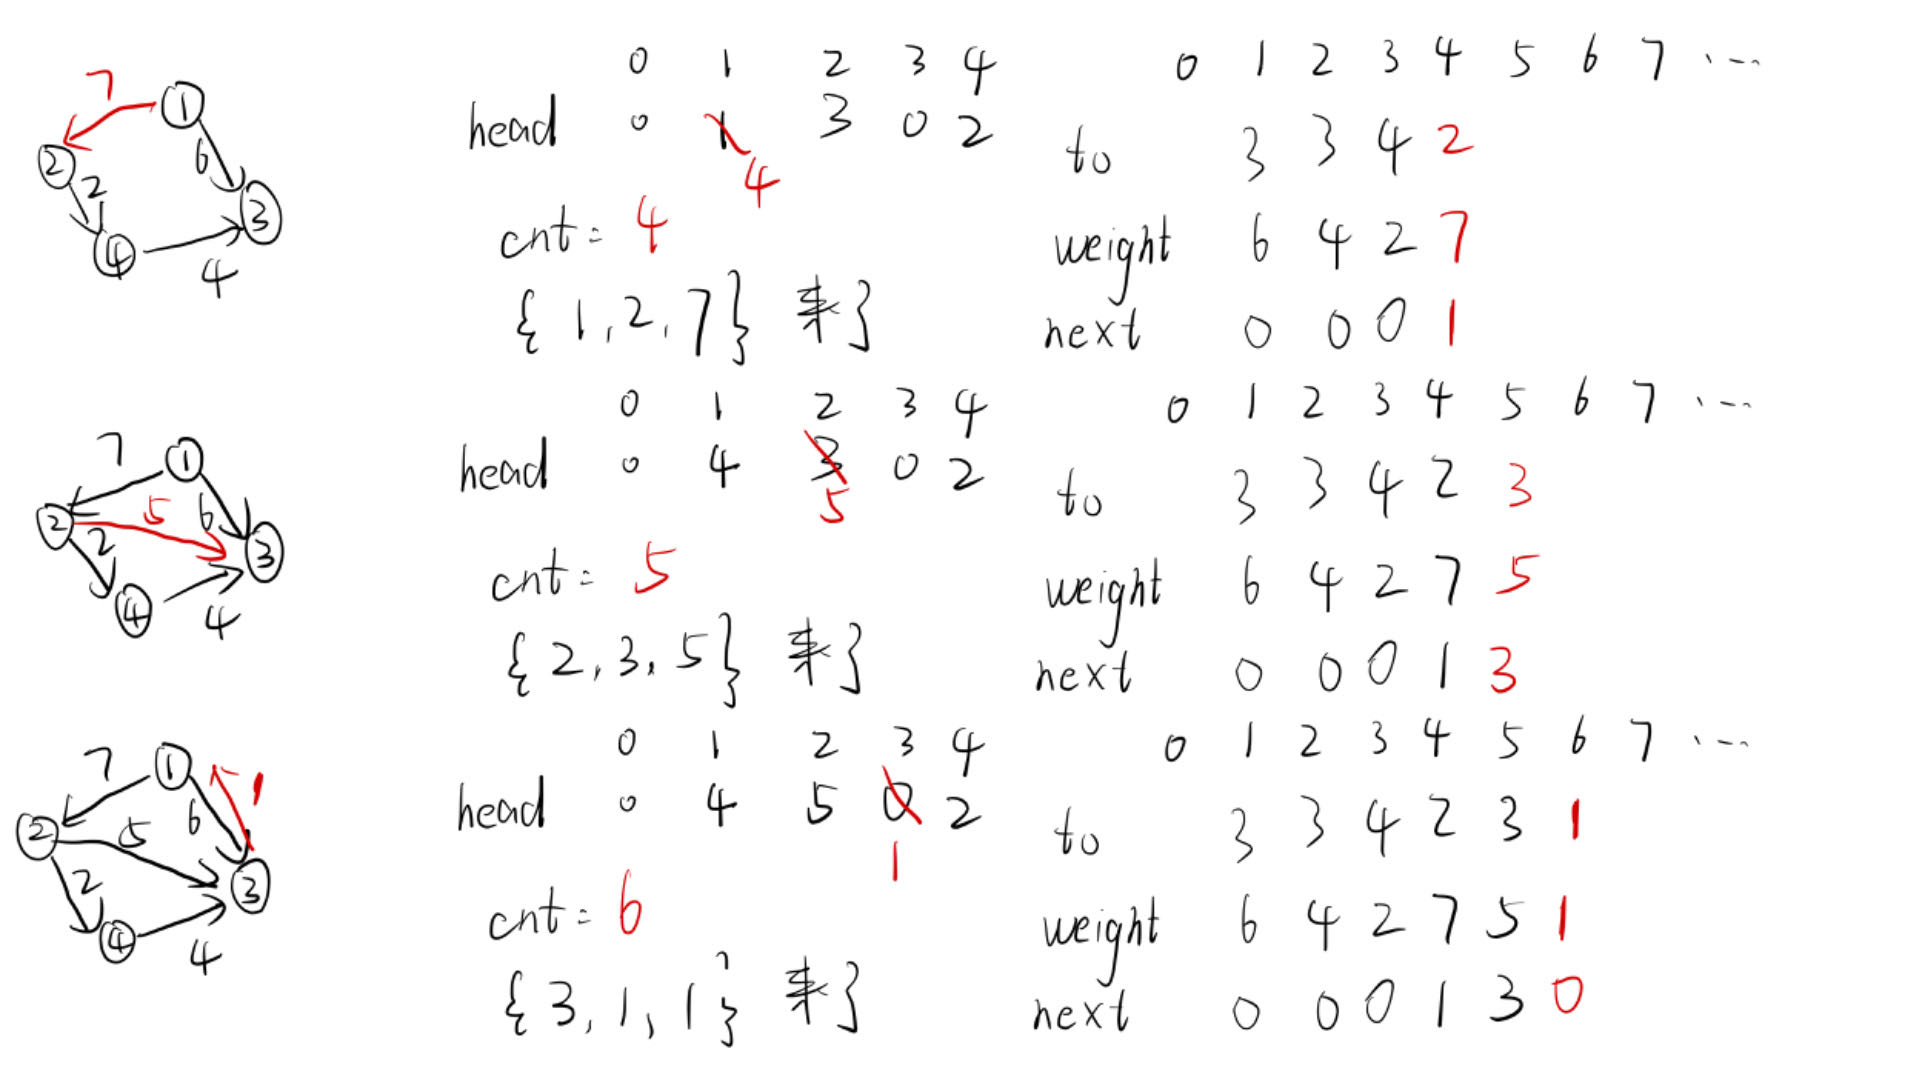 0 1 2 3 4
head 0 1 3 0 2
4
cnt = 4
{ 1, 2, 7 } 来了
0 1 2 3 4 5 6 7 ...
to 3 3 4 2
weight 6 4 2 7
next 0 0 0 1
7
1
2
6
2
3
4
4
0 1 2 3 4
head 0 4 3 0 2
5
cnt = 5
{ 2, 3, 5 } 来了
0 1 2 3 4 5 6 7 ...
to 3 3 4 2 3
weight 6 4 2 7 5
next 0 0 0 1 3
7
1
2
5
6
2
3
4
4
0 1 2 3 4
head 0 4 5 0 2
1
cnt = 6
{ 3, 1, 1 } 来了
0 1 2 3 4 5 6 7 ...
to 3 3 4 2 3 1
weight 6 4 2 7 5 1
next 0 0 0 1 3 0
7
1
1
2
5
6
2
3
4
4